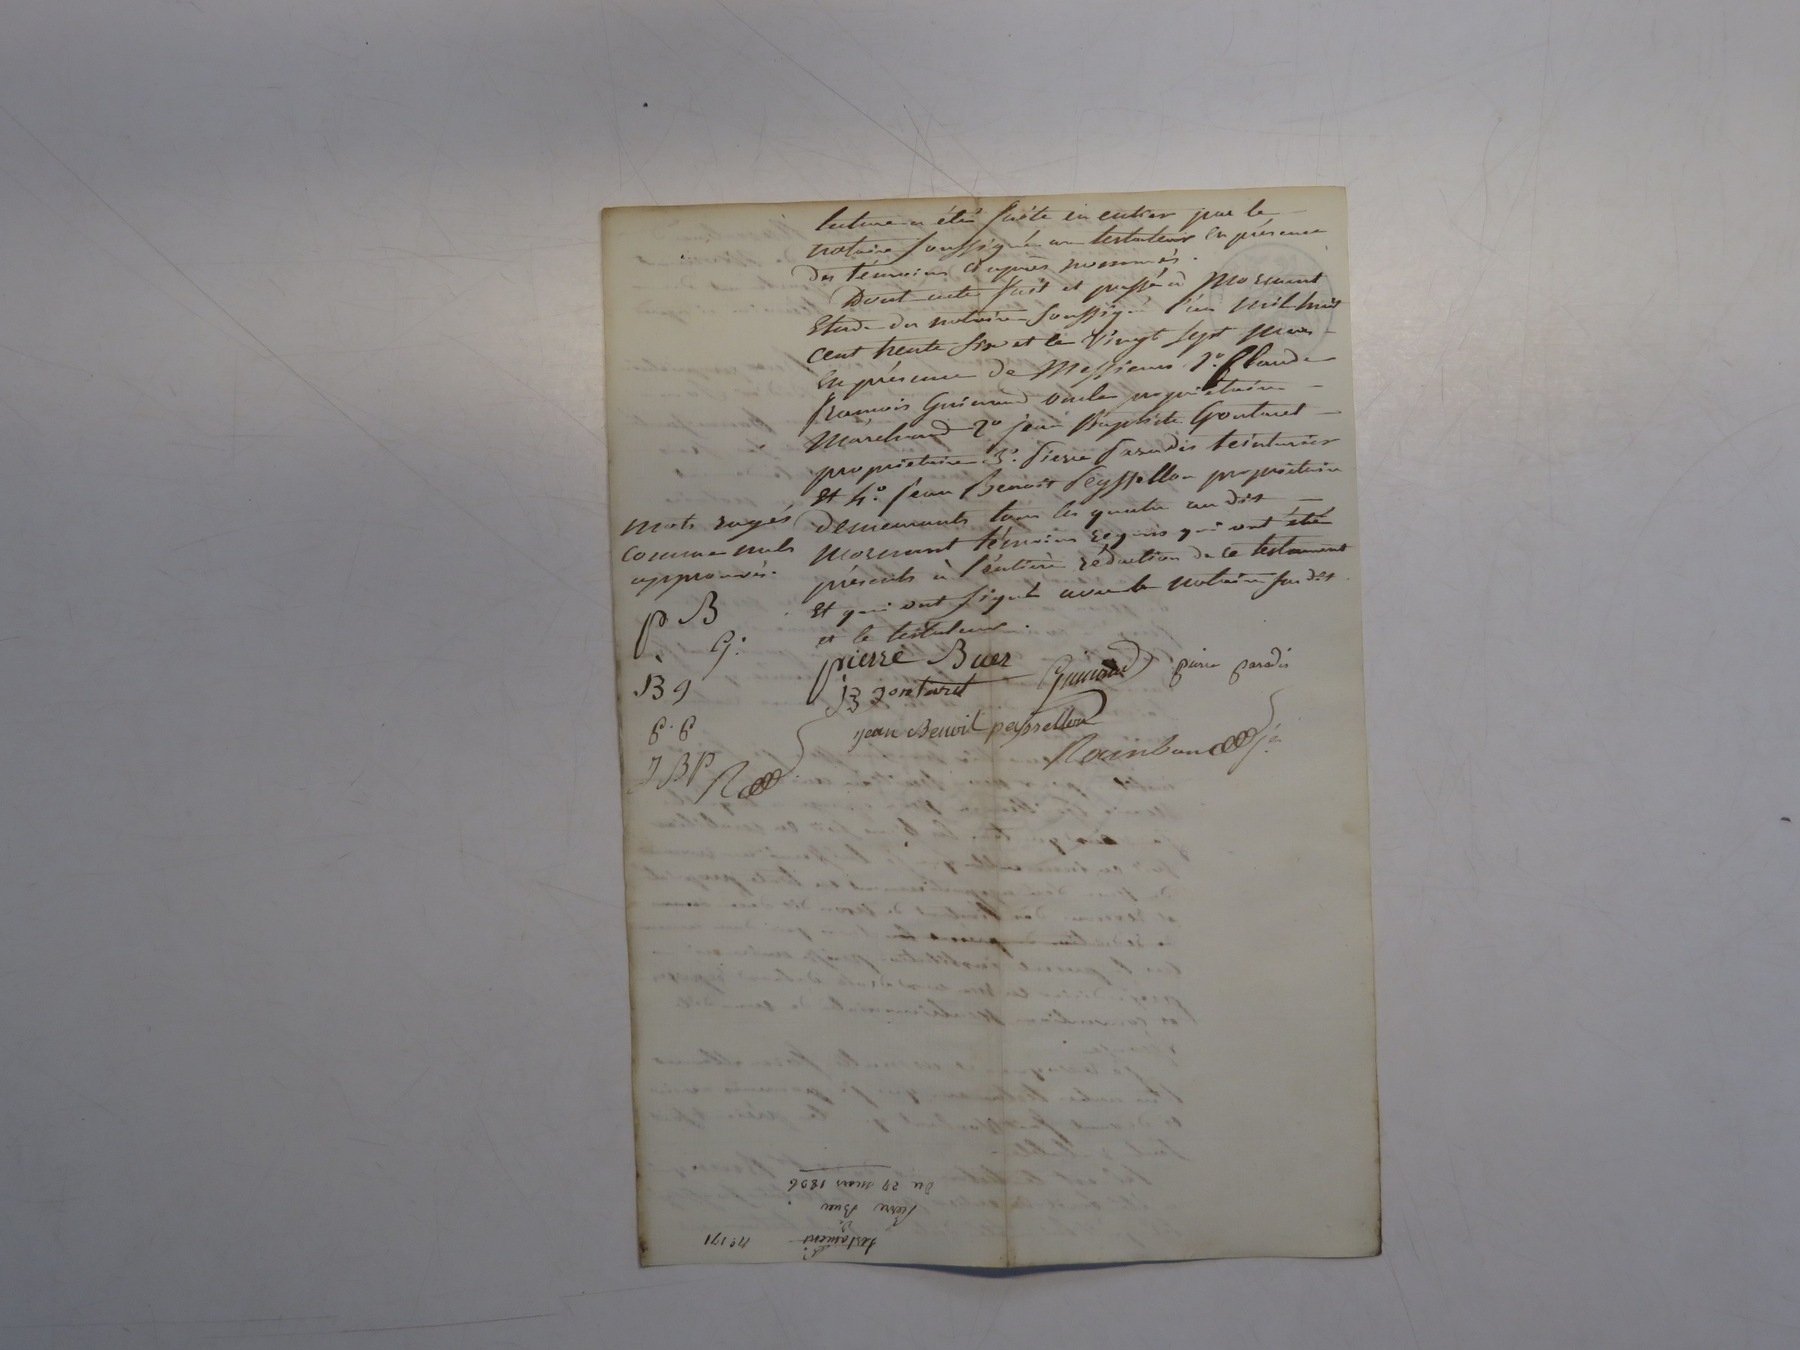 lecture a été faite en entier par le
notaire soussigné au testateur en présence
des témoins ci après nommés.
Dont acte fait et passé à Mornant
Etude du notaire soussigné l'an mil huit
cent trente six et le vingt sept mars
en présence de Messieurs 1º. Claude
françois Guimand propriétaire
Marchand 2º jean Baptiste Gontaret
propriétaire 3º. pierre paradis teinturier
et 4º. jean Benoit Peyssellon propriétaire
demeurants tous les quatre au dit
Mornant témoins requis qui ont été
présents à l'entière rédaction de ce testament
et qui ont signé avec le notaire sus dit
et le testateur.
mots rayés
comme nuls
approuvés.
p B
G:
B g
p. p
J B P
pierre Buer
JB gontaret Guimand pierre paradis
jean Benoit peyssellon
Nº 171
testament
de
Pierre Buer
Du 27 mars 1836